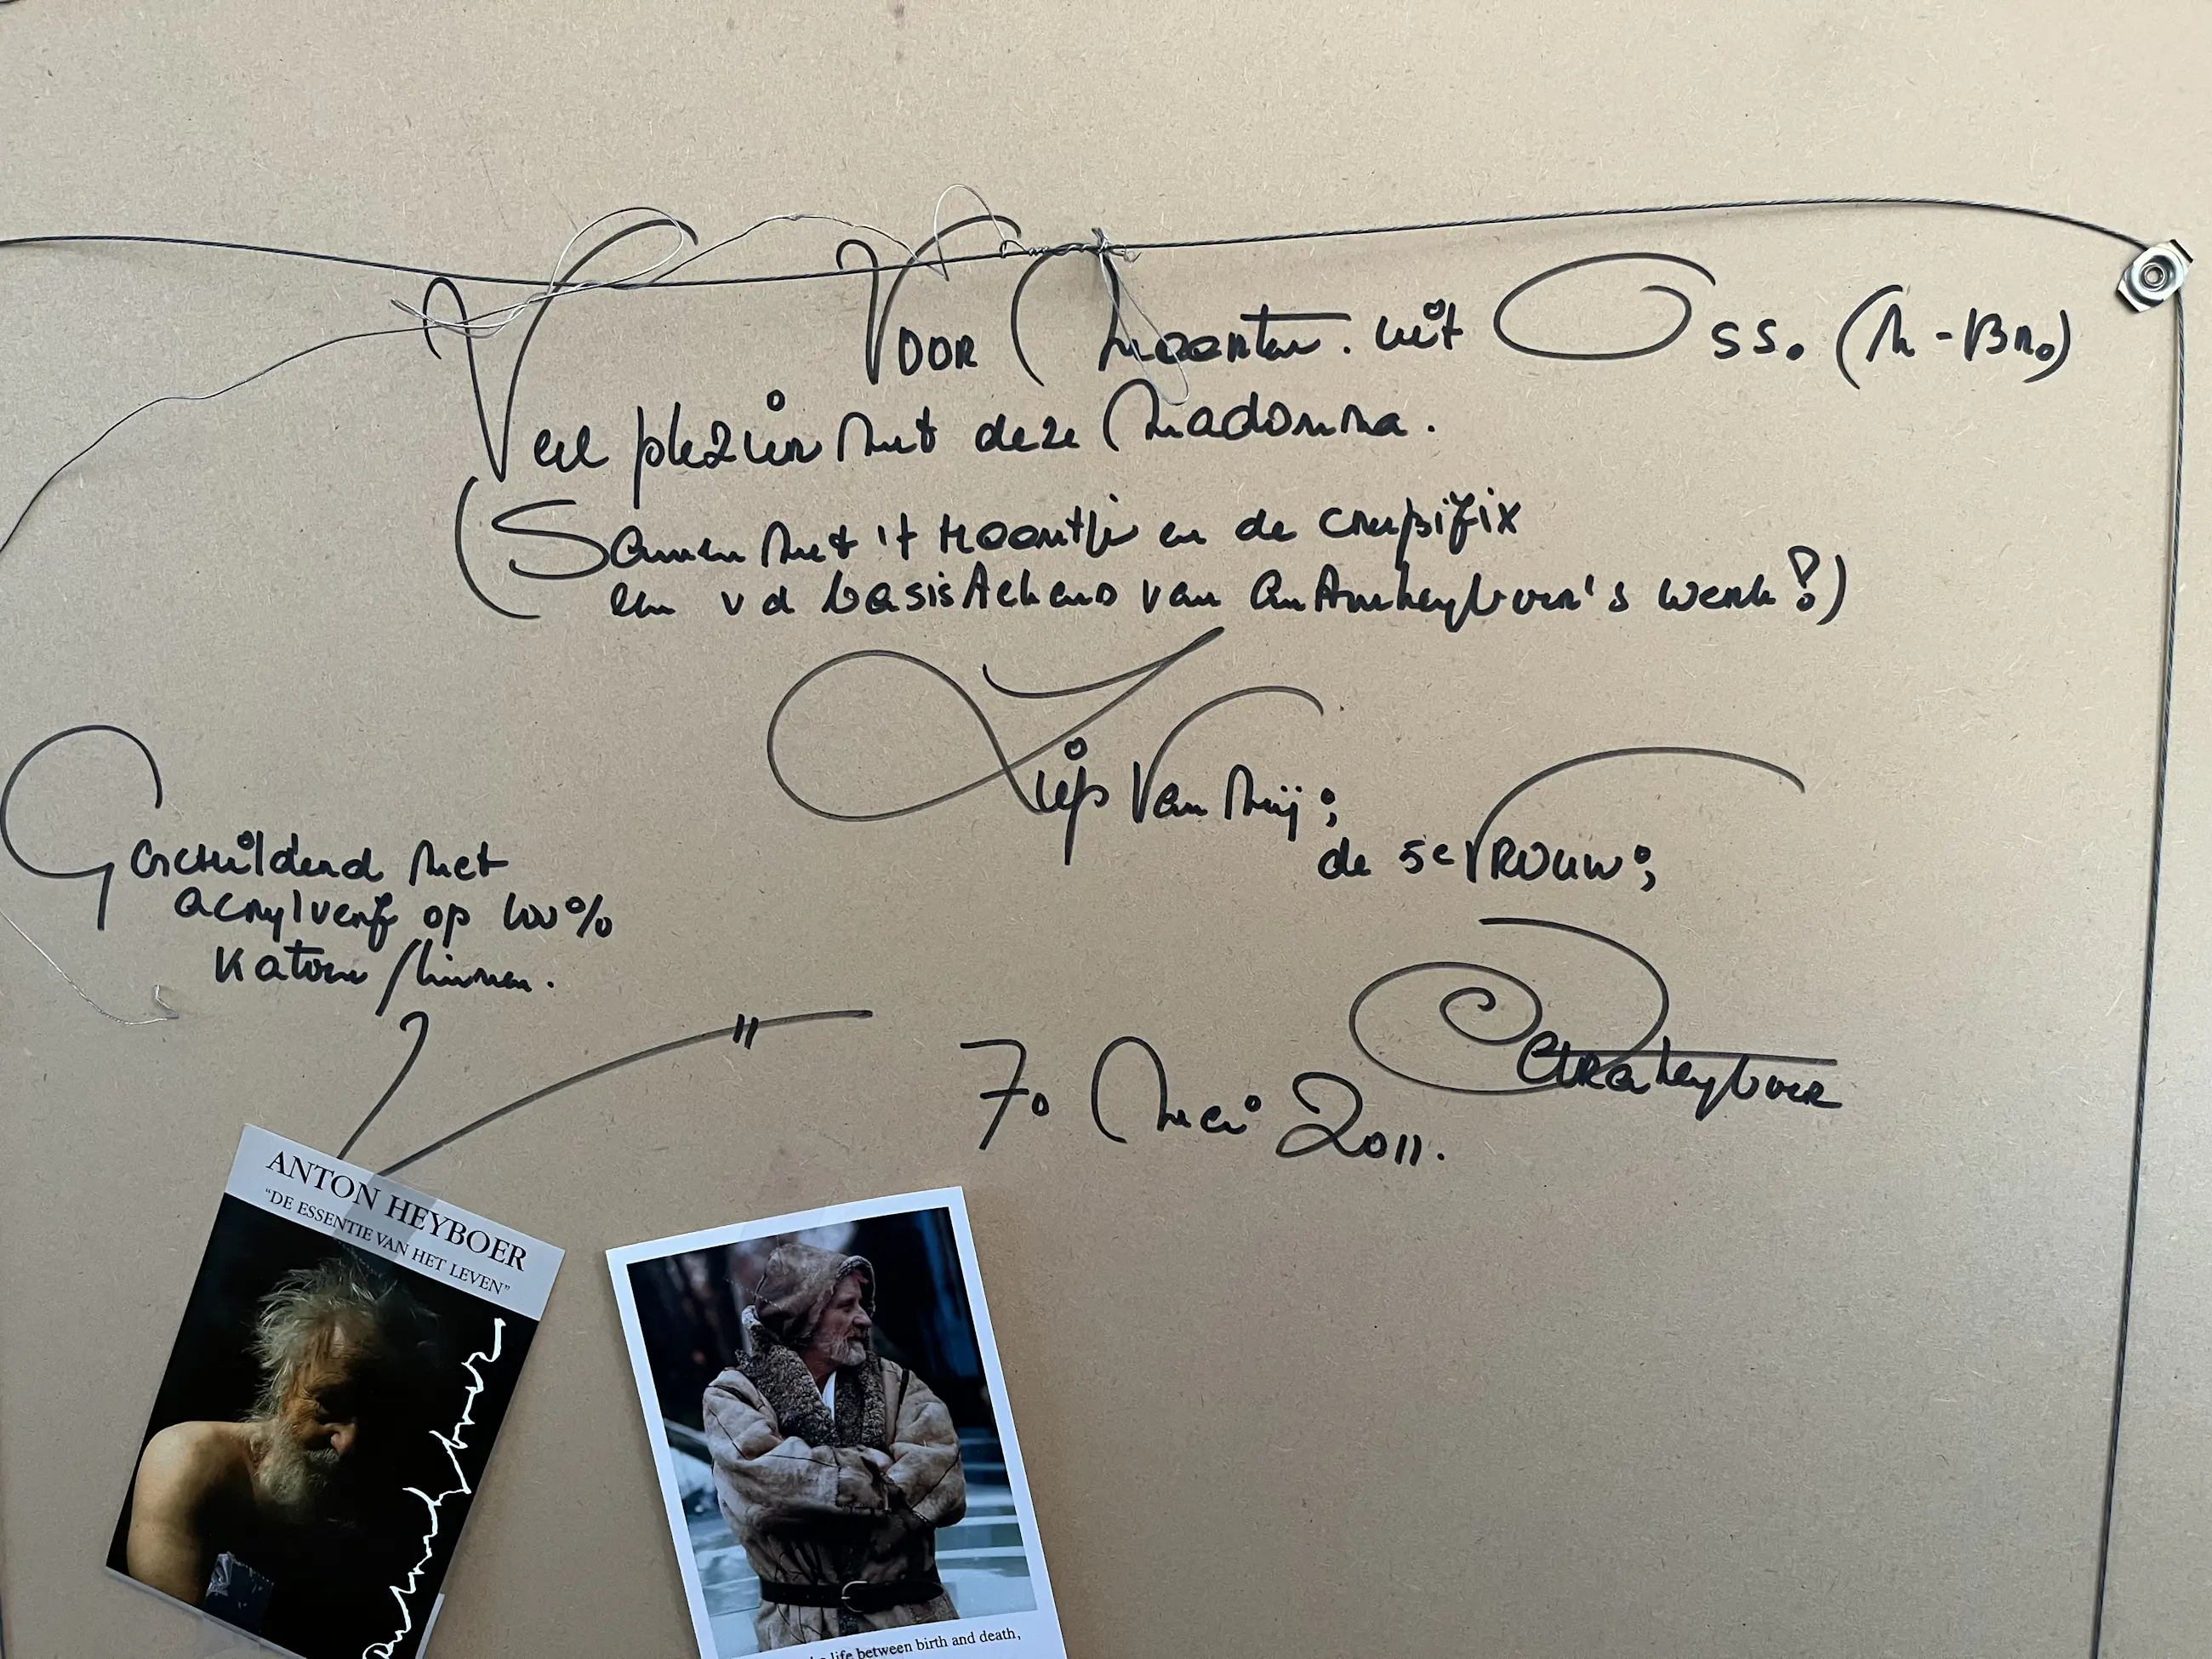 Voor Maarten. uit Oss. (N-Br.)
Veel plezier met deze Madonna.
(Samen met 't Haantje en de crusifix
een vd basistekens van Anton Heyboer's werk!)
Liefs Van Mij;
de 5e VROUW;
Petra Heyboer
7. Mei 2011.
Geschilderd met
acrylverf op 100%
katoen/linnen.
ANTON HEYBOER
"DE ESSENTIE VAN HET LEVEN"
life between birth and death,